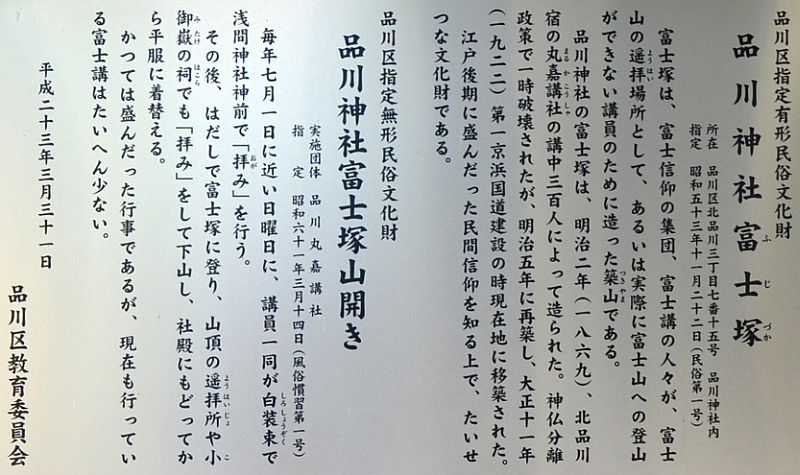 品川区指定有形民俗文化財
品川神社富士塚
所在　品川区北品川三丁目七番十五号　品川神社内
指定　昭和五十三年十一月二十二日（民俗第一号）
富士塚は、富士信仰の集団、富士講の人々が、富士
山の遥拝場所として、あるいは実際に富士山への登山
ができない講員のために造った築山である。
品川神社の富士塚は、明治二年（一八六九）、北品川
宿の丸嘉講社の講中三百人によって造られた。神仏分離
政策で一時破壊されたが、明治五年に再築し、大正十一年
（一九二二）第一京浜国道建設の時現在地に移築された。
江戸後期に盛んだった民間信仰を知る上で、たいせ
つな文化財である。
品川区指定無形民俗文化財
品川神社富士塚山開き
実施団体　品川丸嘉講社
指　定　昭和六十一年三月十四日（風俗慣習第一号）
毎年七月一日に近い日曜日に、講員一同が白装束で
浅間神社神前で「拝み」を行う。
その後、はだしで富士塚に登り、山頂の遥拝所や小
御嶽の祠でも「拝み」をして下山し、社殿にもどってか
ら平服に着替える。
かつては盛んだった行事であるが、現在も行ってい
る富士講はたいへん少ない。
平成二十三年三月三十一日
品川区教育委員会